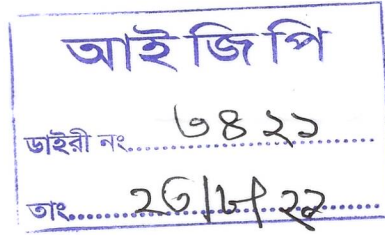 আই জি পি
ডাইরী নং..... ৩৪২১
তাং..... ২৩/৮/২২